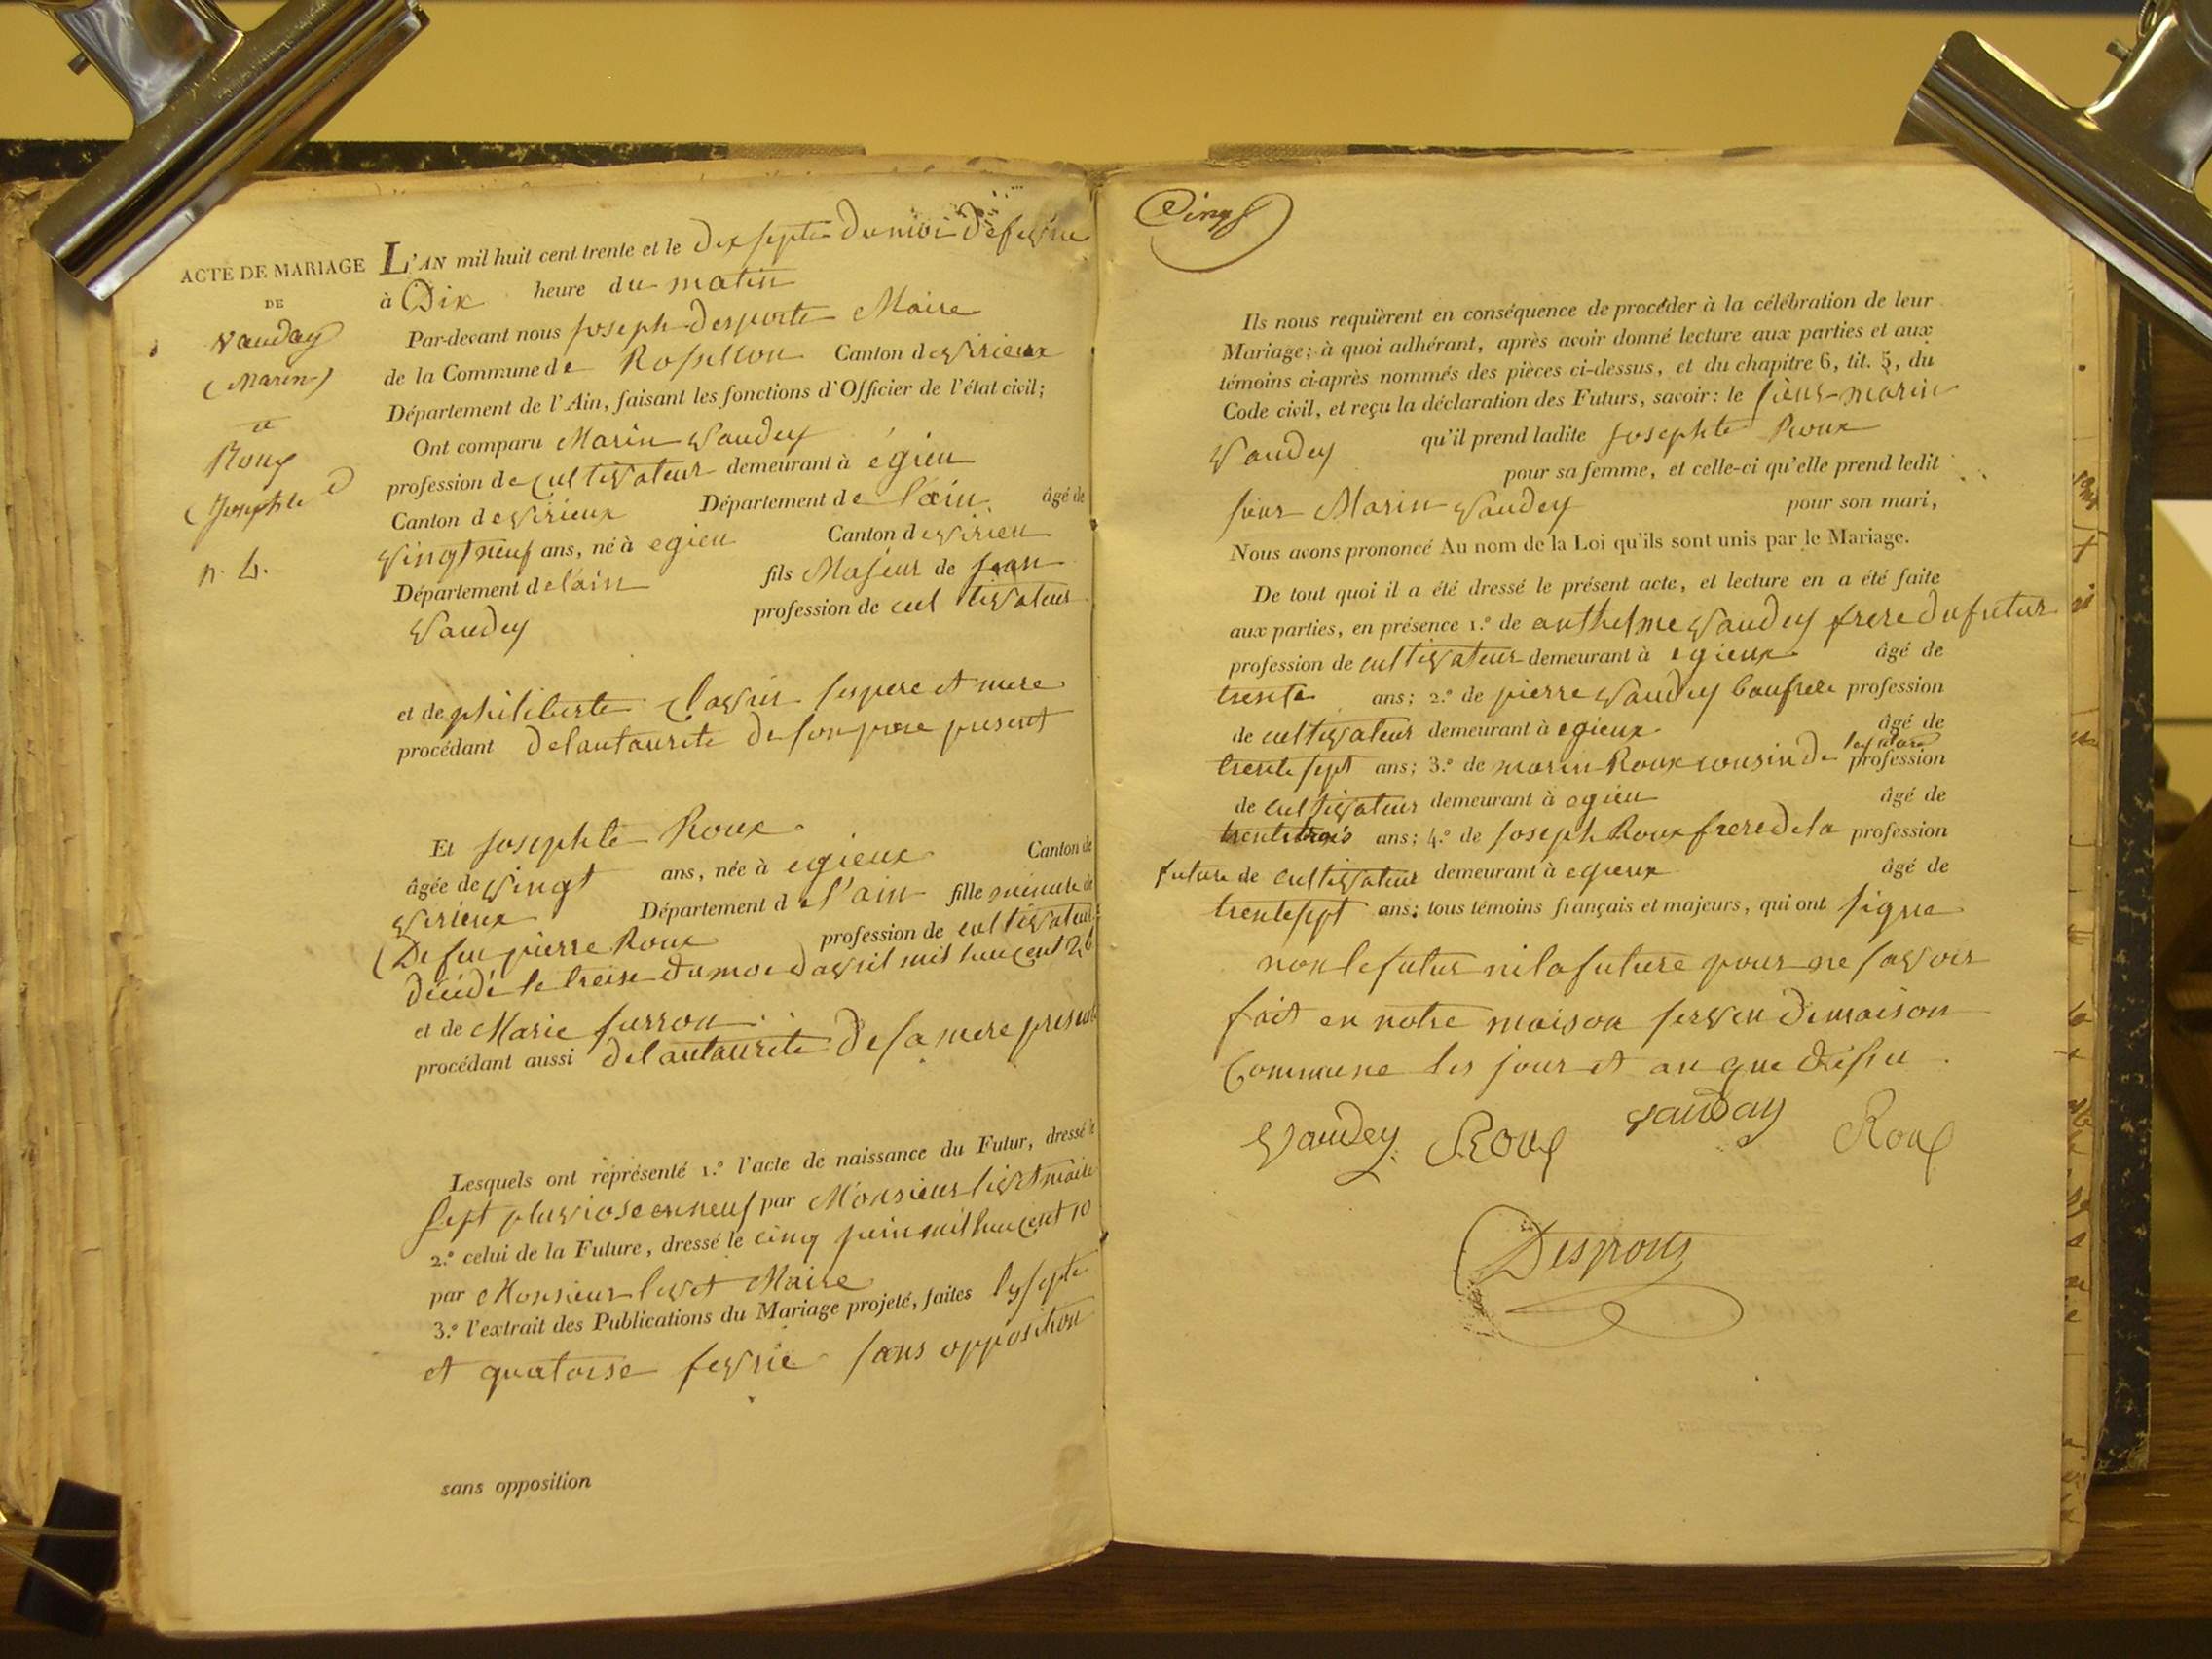 ACTE DE MARIAGE
DE
Vauday
(Marin)
et
Roux
(Josephte)
n. 4.
L'AN mil huit cent trente et le dix septe du moi de fevrie
à Dix heure du matin
Par-devant nous joseph desporte Maire
de la Commune de Rossillon Canton de virieux
Département de l'Ain, faisant les fonctions d'Officier de l'état civil;
Ont comparu Marin vaudey
profession de cultivateur demeurant à égieu
Canton de virieux Département de l'ain âgé de
vingt neuf ans, né à egieu Canton de virieu
Département de l'ain fils Majeur de jean
vaudey profession de cultivateur
et de philiberte ses pere et mere
procédant de lautaurite de son pere present
Et josephte Roux
âgée de vingt ans, née à egieux Canton de
virieux Département de l'ain fille mineure de
De feu pierre Roux profession de cultivateur
décidé le treise du moi davril mil huit cent 26
et de Marie furron
procédant aussi de lautaurite de sa mere presente
Lesquels ont représenté 1.º l'acte de naissance du Futur, dressé le
sept pluviose en neuf par Monsieur livet maire
2.º celui de la Future, dressé le cinq juin mil huit cent 10
par Monsieur livet Maire
3.º l'extrait des Publications du Mariage projeté, faites les septe
et quatorse fevrie sans opposition
sans opposition
Cinq
Ils nous requièrent en conséquence de procéder à la célébration de leur
Mariage; à quoi adhérant, après avoir donné lecture aux parties et aux
témoins ci-après nommés des pièces ci-dessus, et du chapitre 6, tit. 5, du
Code civil, et reçu la déclaration des Futurs, savoir: le sieur marin
Vaudey qu'il prend ladite josephte Roux
pour sa femme, et celle-ci qu'elle prend ledit
sieur Marin vaudey pour son mari,
Nous avons prononcé Au nom de la Loi qu'ils sont unis par le Mariage.
De tout quoi il a été dressé le présent acte, et lecture en a été faite
aux parties, en présence 1.º de anthelme vaudey frere du futur
profession de cultivateur demeurant à egieux âgé de
trente ans; 2.º de pierre vaudey baufrere profession
de cultivateur demeurant à egieux âgé de
trente sept ans; 3.º de marin Roux cousin de profession
de cultivateur demeurant à egieu âgé de
trente trois ans; 4.º de joseph Roux frere de la profession
future de cultivateur demeurant à egieux âgé de
trente sept ans; tous témoins français et majeurs, qui ont signe
non le futur ni la future pour ne savoir
fait en notre maison servan de maison
Commune les jour et an que dessu.
Vaudey Roux vauday Roux
Desportes